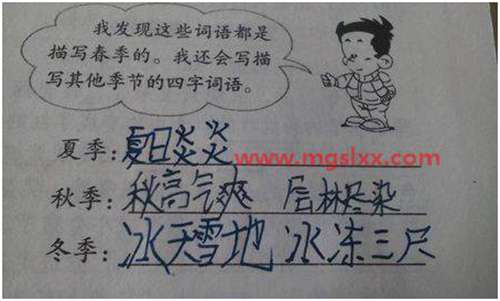 我发现这些词语都是
描写春季的。我还会写描
写其他季节的四字词语。
夏季：夏日炎炎
www.mgslxx.com
秋季：秋高气爽 层林尽染
冬季：冰天雪地 冰冻三尺